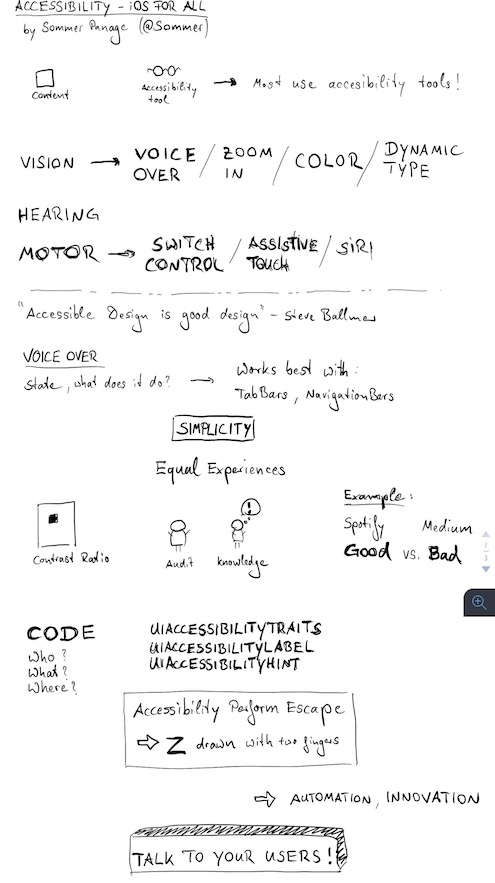 ACCESSIBILITY - iOS FOR ALL
by Sommer Panage (@Sommer)
Content
Accessibility tool
→ Most use accesibility tools!
VISION → VOICE OVER / ZOOM IN / COLOR / DYNAMIC TYPE
HEARING
MOTOR → SWITCH CONTROL / ASSISTIVE TOUCH / SiRI
"Accessible Design is good design" - Steve Ballmer
VOICE OVER
State, what does it do? → Works best with:
TabBars, NavigationBars
SIMPLICITY
Equal Experiences
Contrast Radio
Audit
!
knowledge
Example:
Spotify Medium
Good vs. Bad
1
3
CODE
Who?
What?
Where?
UIACCESSIBILITYTRAITS
UIACCESSIBILITYLABEL
UIACCESSIBILITYHINT
Accessibility Perform Escape
⇒ Z drawn with two fingers
⇒ AUTOMATION, INNOVATION
TALK TO YOUR USERS!